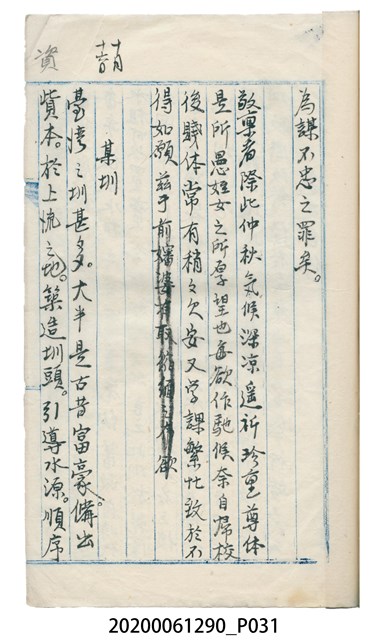 為謀不忠之罪矣。
敬稟者際此仲秋氣候深凉遥祈珍重尊体
是所愚姪女之所厚望也每欲作馳候奈自歸校
後賤体常有稍々欠安又学課繁忙致於不
得如願茲于前嬸婆
欲
某圳
臺灣之圳甚多。大半是古昔富豪。備出
貲本。於上流之地。築造圳頭。引導水源。順序
資
20200061290_P031